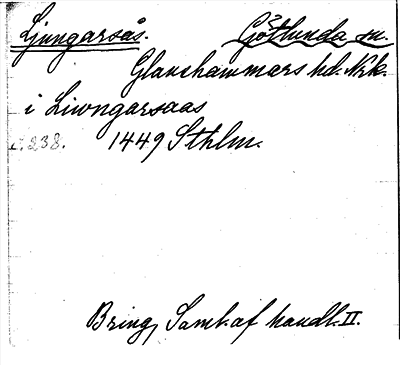 Ljungarsås. Götlunda sn.
Glanshammars hd. Nrk.
i Liwngarsaas
238. 1449 Sthlm.
Bring, Saml. af handl. II.